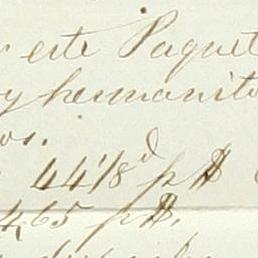 este Paquet
y hermanito
os.
44 1/8 d p $
465 p $.